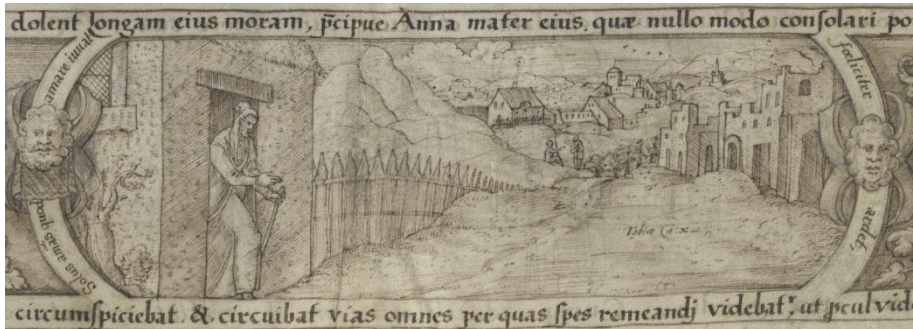 dolent longam eius moram, p̄cipue Anna mater eius, quæ nullo modo consolari po
amare iuuat
fœliciter
Tobiæ Ca: x
Solus
ardet,
circumspiciebat, & circuibat vias omnes per quas spes remeandj videbatʳ, ut pcul vid